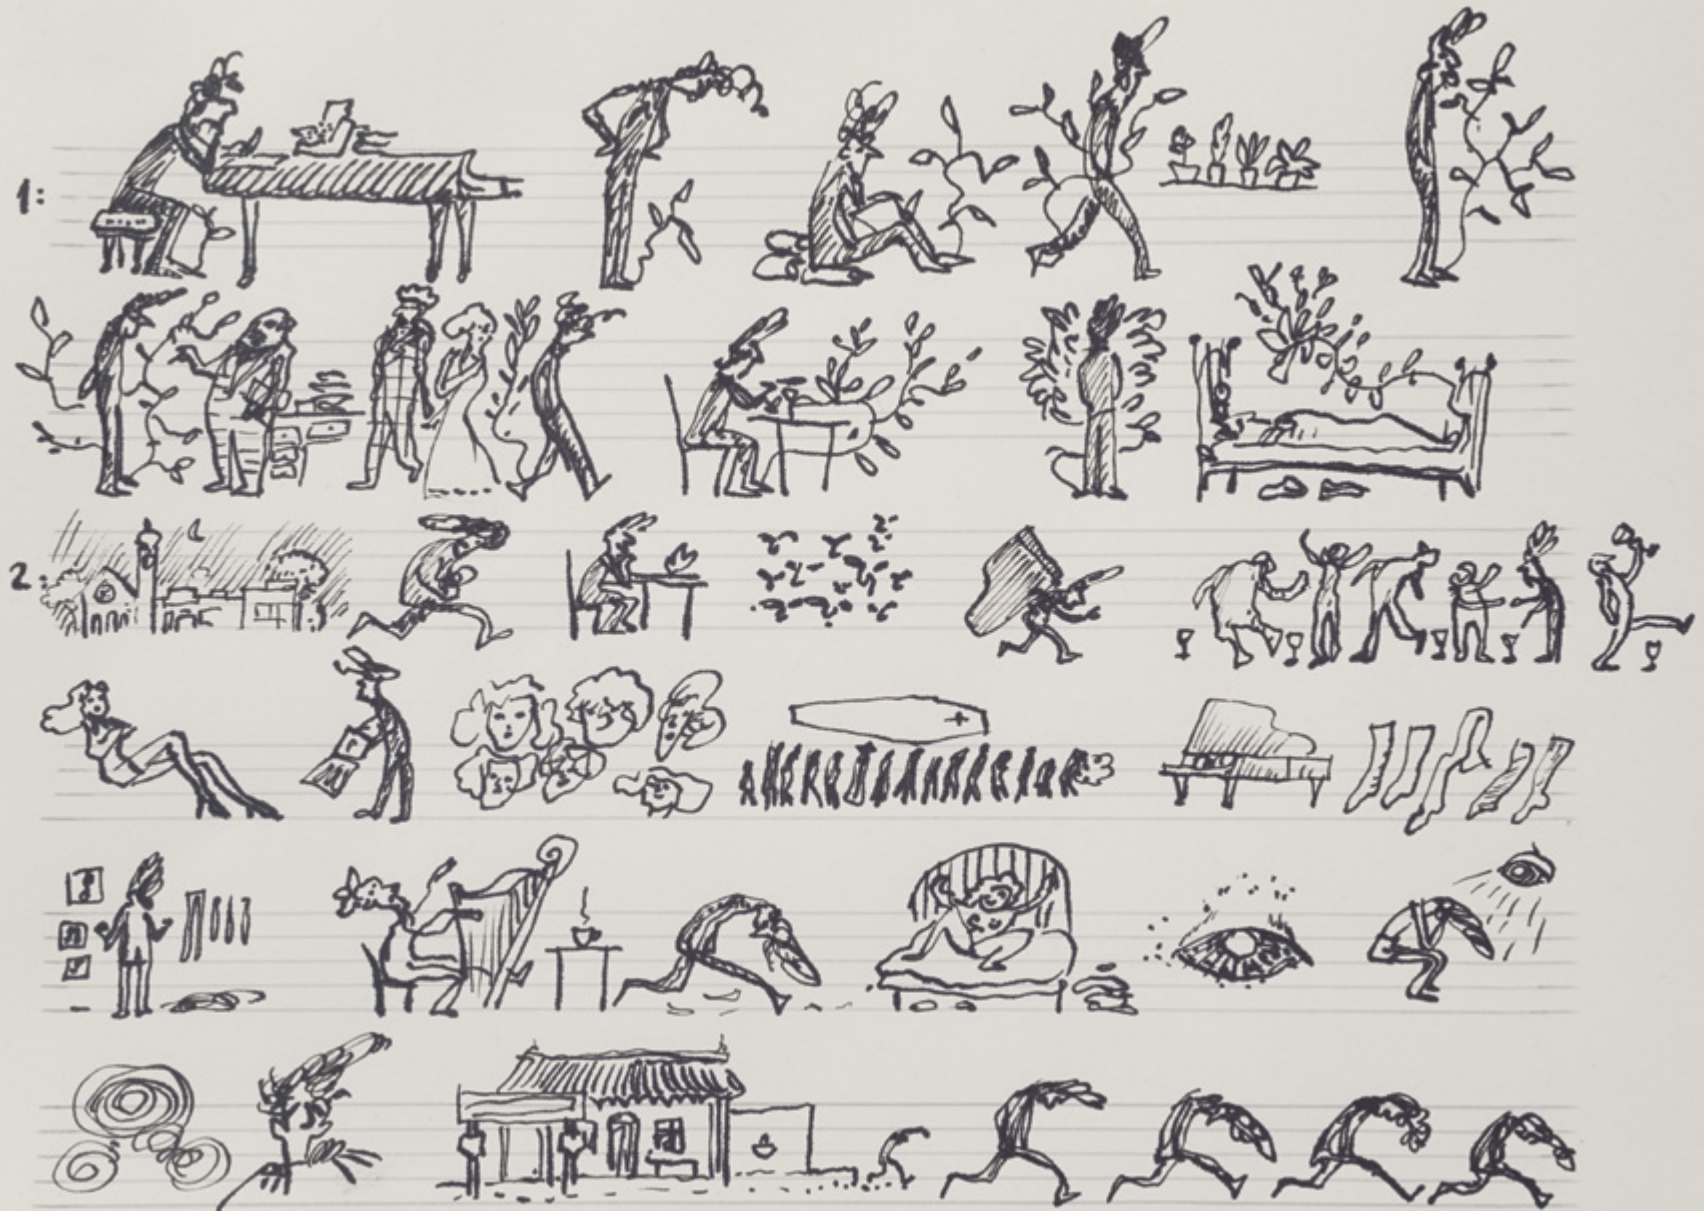 1:
2: